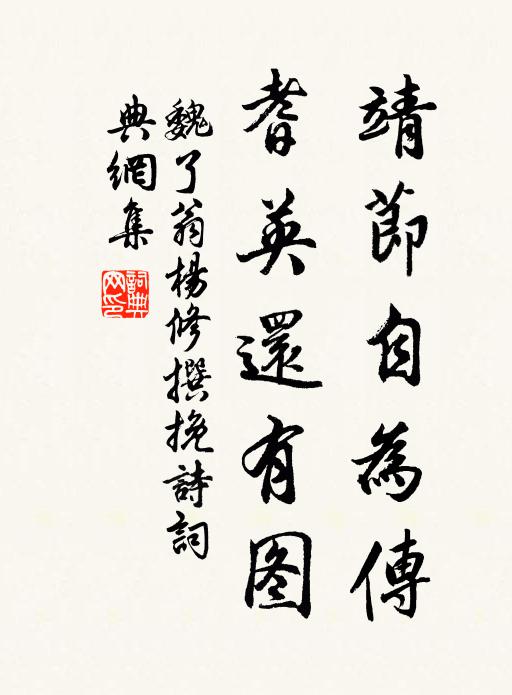 靖節自為傳
耆英還有图
魏了翁楊修撰挽詩詞
典網集
詞典网印